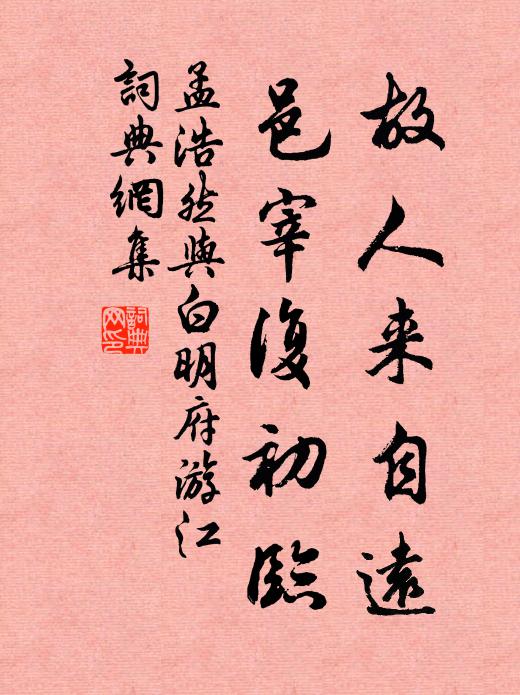 故人来自遠
邑宰復初臨
孟浩然與白明府游江
詞典網集
詞典
网印